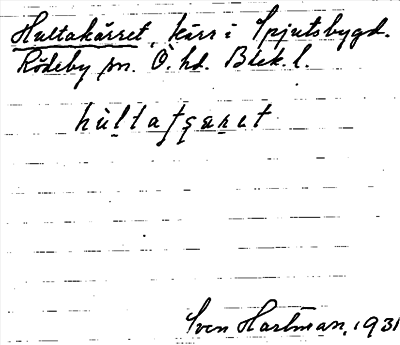 Hultakärret, kärr i Spjutsbygd.
Rödeby sn. Ö. hd. Blek. l.
Sven Hartman, 1931